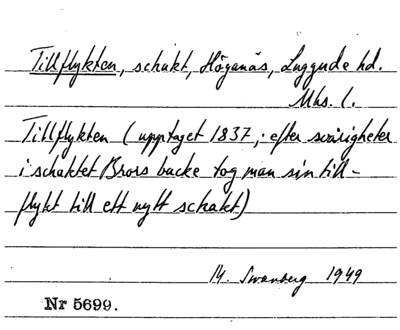 Tillflykten, schakt, Höganäs, Luggude hd.
Mhs. l.
Tillflykten (upptaget 1837; efter svårigheter
i schaktet Brors backe tog man sin till-
flykt till ett nytt schakt)
M. Swanberg 1949
Nr 5699.